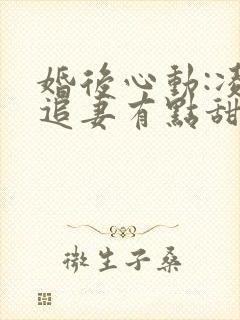 婚後心動:
追妻有點甜
微生子桑